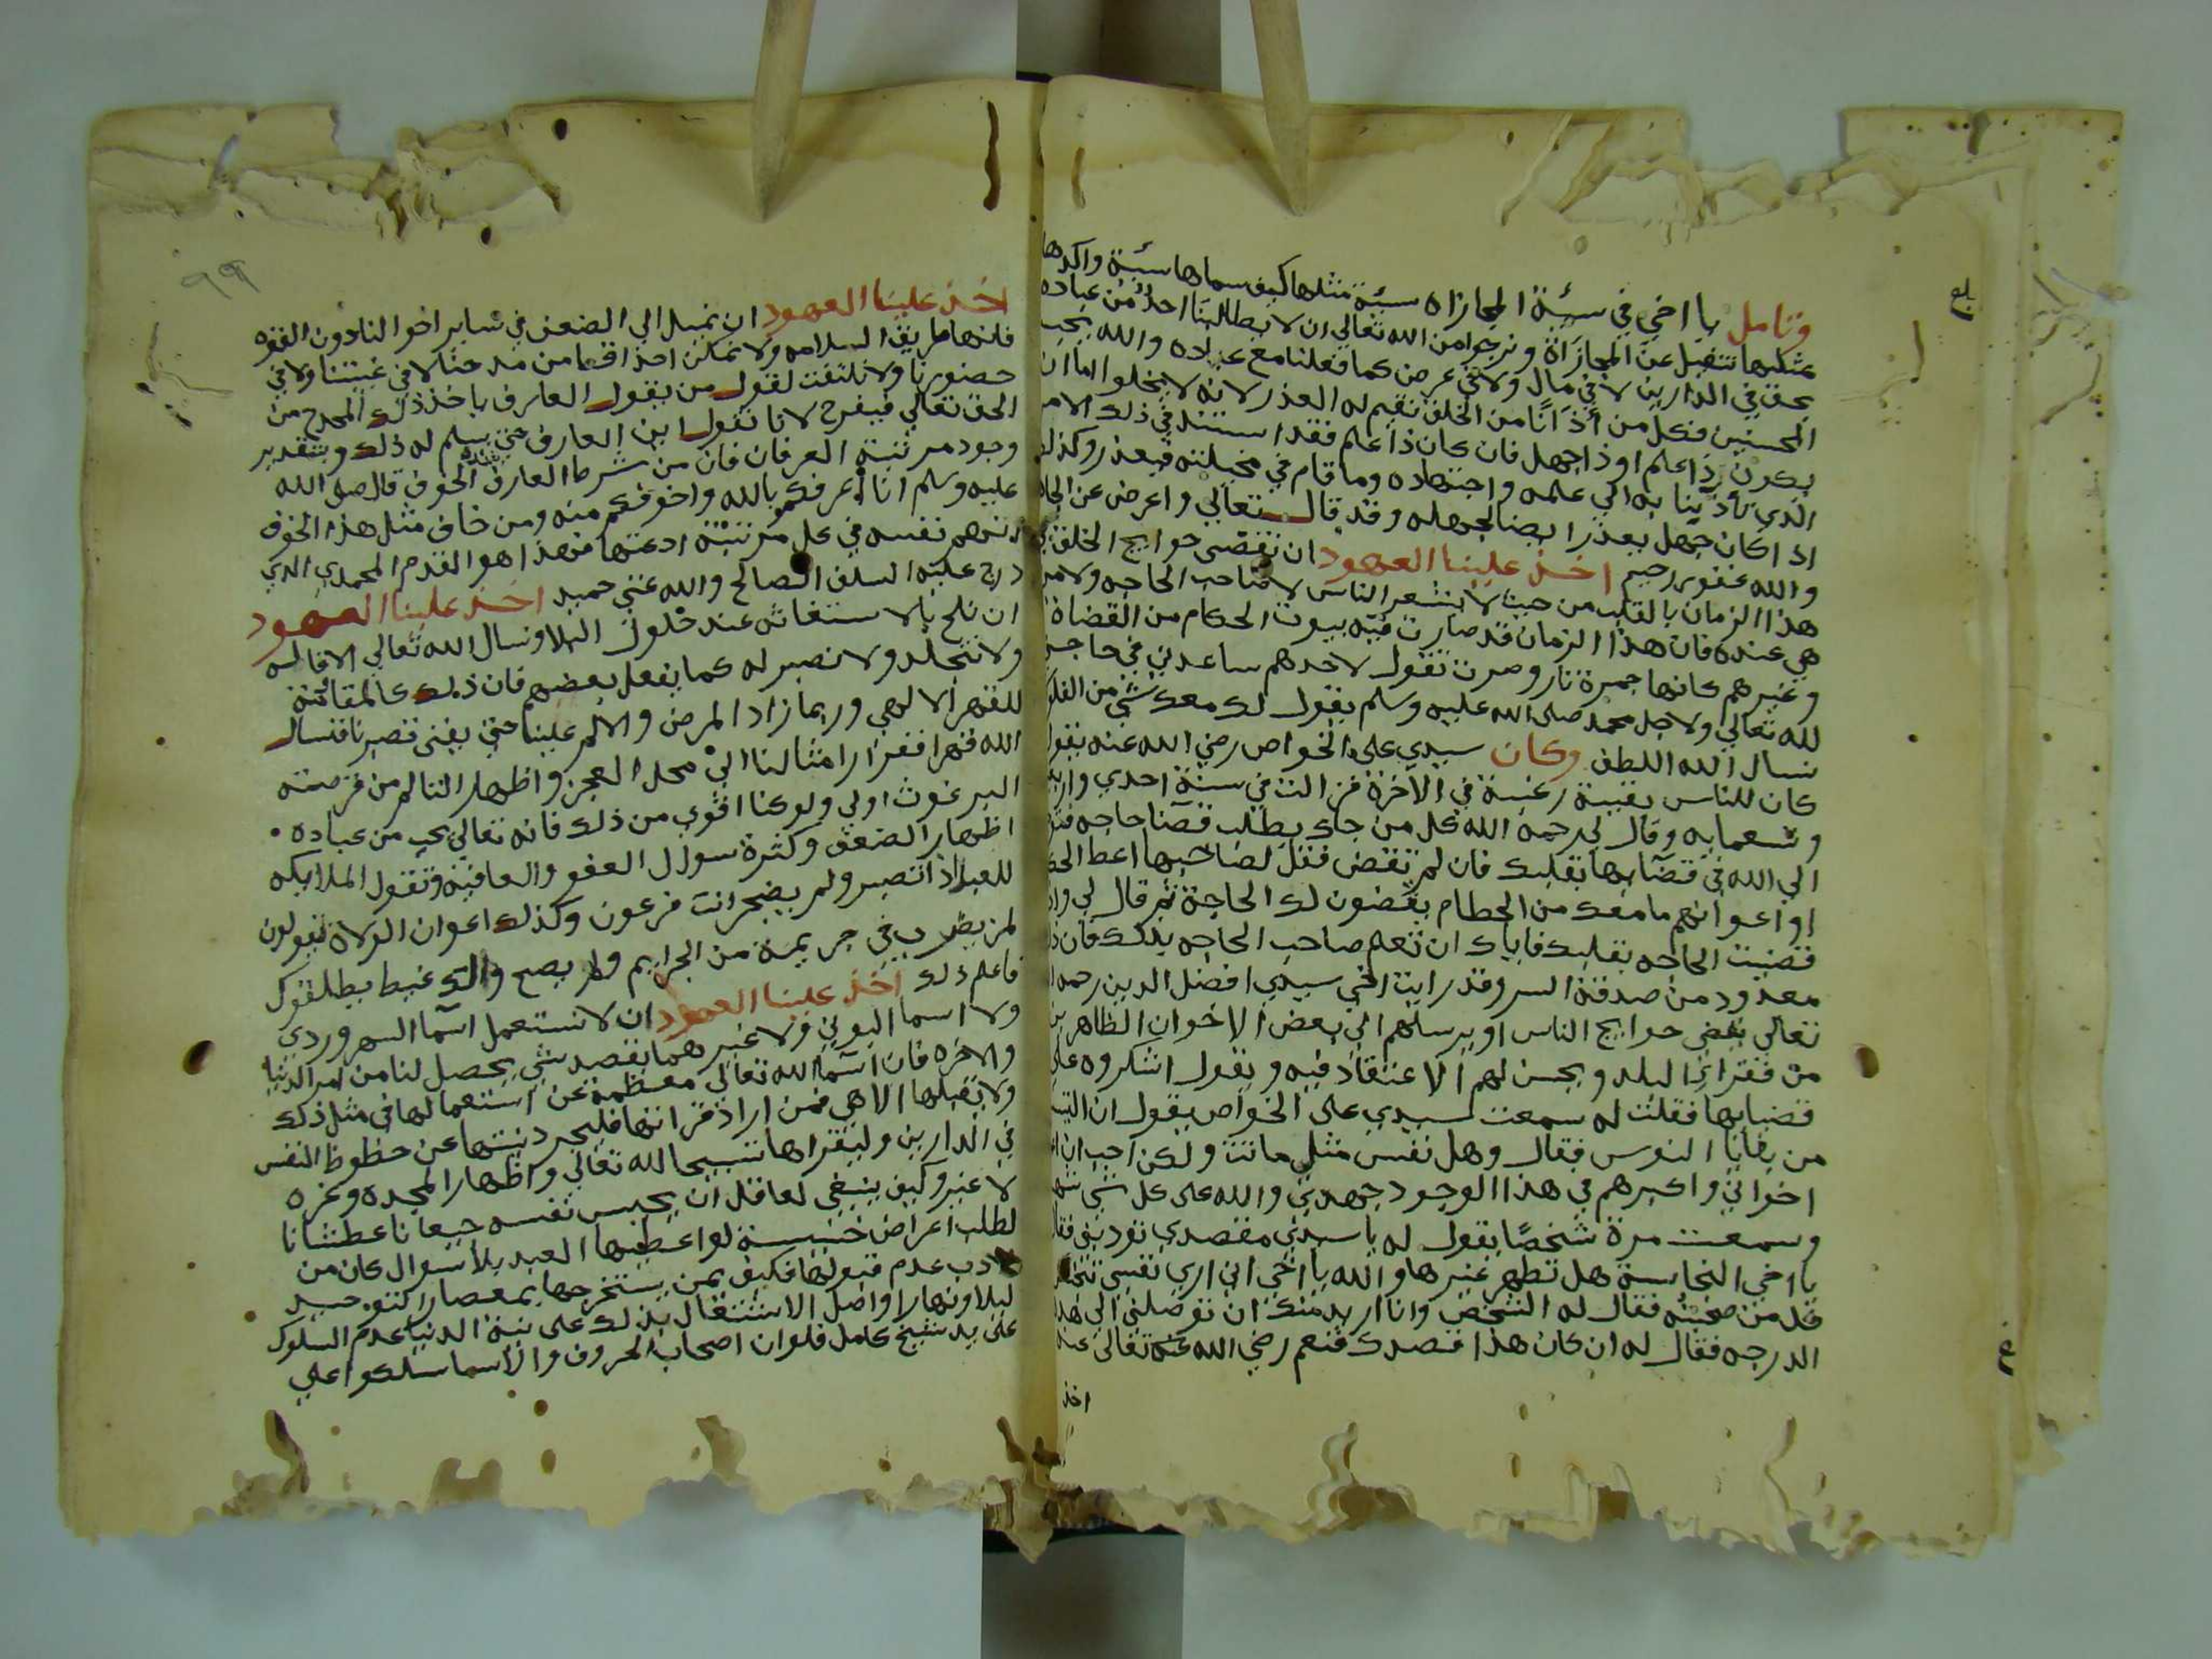 وتامل يا اخي في سيئة المجازاه سيئة مثلها كيف سماها سيئة واكدها
بمثلها تتفبل عن المجازاة ونرجوا من الله تعالي ان لا يطالبنا احد من عباده
بحق في الدارين لا في مال ولا في عرض كما فعلنا مع عباده والله يحب
المحسنين فكل من أذانا من الخلق نقيم له العذر لانه لا يخلوا اما ان
يكون ذا علم او ذا جهل فان كان ذا علم فقد استند في ذلك الامر
الذي تأذينا به الي علمه واجتهاده وما قام في مخيلته فيعذر وكذلك
اذا كان جهل يعذر ايضا لجهله وقد قال تعالي واعرض عن الجاهلين
والله غفور رحيم اخذ علينا العهود ان نقضي حوايج الخلق في
هذا الزمان بالقلب من حيث لا يشعر الناس لا صاحب الحاجه ولا من
هي عنده فان هذا الزمان قد صارت فيه بيوت الحكام من القضاة
وغيرهم كانها جمرة نار وصرت تقول لاحدهم ساعدني في حاجة
لله تعالي ولاجل محمد صلى الله عليه وسلم يقول لك معك شي من الفلوس
نسال الله اللطف وكان سيدي علي الخواص رضي الله عنه يقول
كان للناس بقية رغبة في الاخرة فزالت في سنة احدي واربعين
وتسعمايه وقال لي رحمه الله كل من جاك يطلب قضا حاجه فتوجه
الي الله في قضايها بقلبك فان لم تقض فقل لصاحبها اعط الحكام
او اعوانهم ما معك من الحطام يقضون لك الحاجة ثم قال لي واذا
قضيت الحاجه بقلبك فاياك ان تعلم صاحب الحاجه بذلك فان ذلك
معدود من صدقة السر وقد رايت اخي سيدي افضل الدين رحمه الله
تعالي يقضي حوايج الناس او يرسلهم الي بعض الاخوان الظاهرين
من فقراء البلد ويحسن لهم الاعتقاد فيه ويقول اشكروه علي
قضايها فقلت له سمعت سيدي علي الخواص يقول ان
من بقايا النفوس فقال وهل نفس مثلي ماتت ولكن احب ان
اخواني واكبرهم في هذا الوجود جهدي والله علي كل شي شهيد
وسمعت مرة شخصا يقول له يا سيدي مقصدي تودبني فقال
يا اخي النجاسة هل تطهر غيرها والله يا اخي اني اري نفسي
قد من صحبته فقال له الشخص وانا اريد منك ان توصلني الي هذه
الدرجه فقال له ان كان هذا قصدك فنعم رضي الله عنه تعالي عنه
اخذ
٩٩
اخذ علينا العهود ان نميل الي الضعف في ساير احوالنا دون القوه
فانها طريق السلامه ولا نمكن احدا قط من مدحنا لا في غيبتنا ولا في
حضورنا ولا نلتفت لقول من يقول العارف ياخذ ذلك المدح من
الحق تعالي فيفرح لانا نقول اين العارف حتي يسلم له ذلك وبتقدير
وجود مرتبة العرفان فان من شرط العارف شدة الخوف قال صلى الله
عليه وسلم انا اعرفكم بالله واخوفكم منه ومن خاف مثل هذا الخوف
اتهم نفسه في كل مرتبة ادعتها فهذا هو القدم المحمدي الذي
درج عليه السلف الصالح والله غني حميد اخذ علينا العهود
ان نلح بالاستغاثه عند حلول البلا ونسال الله تعالي الاقاله
ولا نتجلد ولا نصبر له كما يفعل بعضهم فان ذلك كالمقاومة
للقهر الالهي وربما زاد المرض والالم علينا حتي يفني صبرنا فنسال
الله قهرا ففرار امثالنا الي محل العجز واظهار التالم من قرصة
البرغوث اولي ولو كنا اقوي من ذلك فانه تعالي يحب من عباده
اظهار الضعف وكثرة سوال العفو والعافية وتقول الملايكه
للعبد اذا تصبر ولم يضجر انت فرعون وكذلك اعوان الولاة يقولون
لمن يضرب في جريمة من الجرايم ولم يصح والك عيط يطلقوك
فاعلم ذلك اخذ علينا العهود ان لا نستعمل اسما السهروردي
ولا اسما البوني ولا غيرهما بقصد شي يحصل لنا من امر الدنيا
والاخره فان اسما الله تعالي معظمة عن استعمالها في مثل ذلك
ولا يقبلها الا هي فمن اراد قراتها فليجرد نيتها عن حظوظ النفس
في الدارين وليقراها تسبيحا لله تعالي واظهارا لمجده وعزه
لا غير وكيف ينبغي لعاقل ان يحبس نفسه جيعانا عطشانا
لطلب اعراض خسيسة لو اعطيها العبد بلا سوال كان من
الادب عدم قبولها فكيف بمن يستخرجها بمعصار التوحيد
ليلا ونهارا واصل الاشتغال بذلك علي نية الدنيا عدم السلوك
علي يد شيخ كامل فلو ان اصحاب الحروف والاسما سلكوا علي